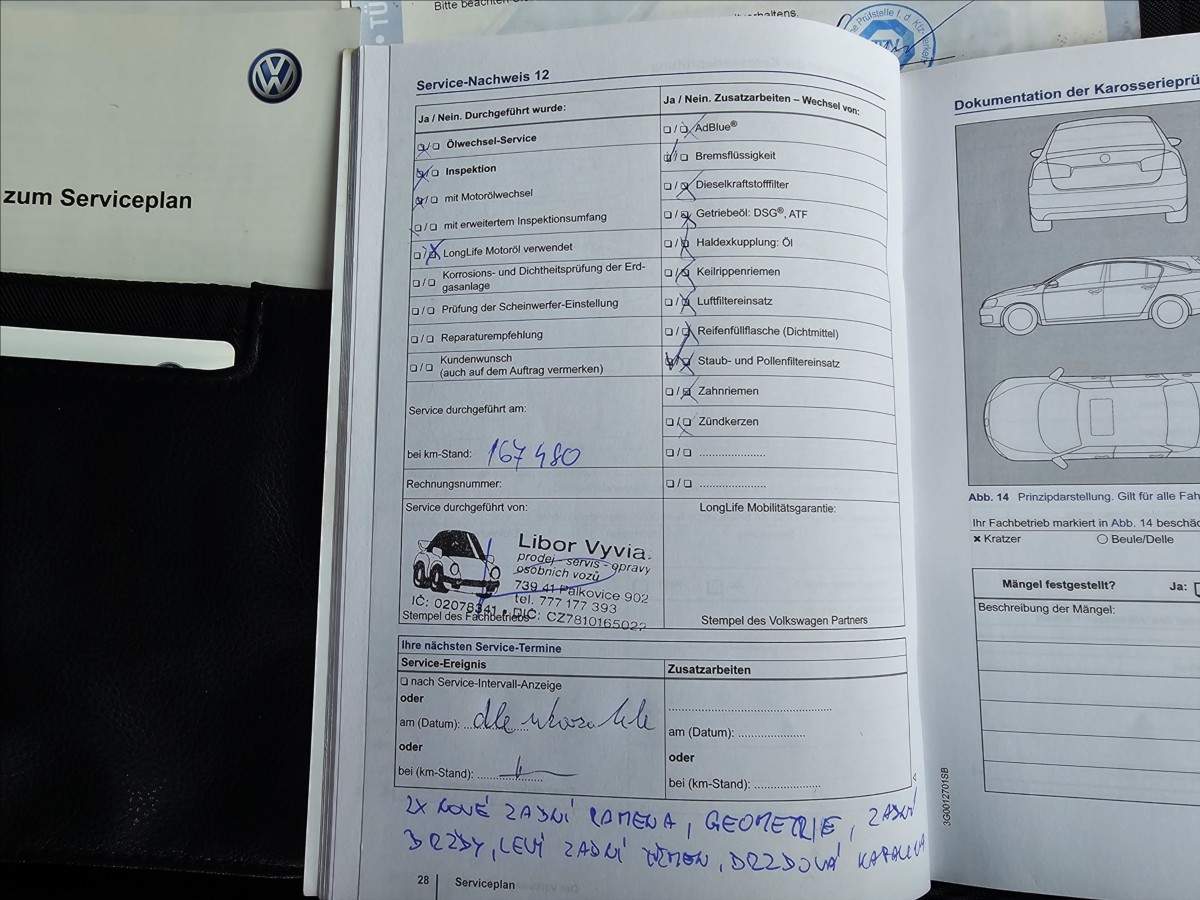 Bitte beachten
TÜ
Prüfstelle f. d. Kfz-
zum Serviceplan
Service-Nachweis 12
Ja / Nein. Durchgeführt wurde:
Ölwechsel-Service
Inspektion
mit Motorölwechsel
mit erweitertem Inspektionsumfang
LongLife Motoröl verwendet
Korrosions- und Dichtheitsprüfung der Erd-
gasanlage
Prüfung der Scheinwerfer-Einstellung
Reparaturempfehlung
Kundenwunsch
(auch auf dem Auftrag vermerken)
Service durchgeführt am:
bei km-Stand: 167 480
Rechnungsnummer:
Ja / Nein. Zusatzarbeiten – Wechsel von:
AdBlue®
Bremsflüssigkeit
Dieselkraftstofffilter
Getriebeöl: DSG®, ATF
Haldexkupplung: Öl
Keilrippenriemen
Luftfiltereinsatz
Reifenfüllflasche (Dichtmittel)
Staub- und Pollenfiltereinsatz
Zahnriemen
Zündkerzen
Service durchgeführt von:
Libor Vyvia
prodej - servis - opravy
osobních vozů
739 41 Palkovice 902
tel. 777 177 393
IČ: 02078341 • DIČ: CZ7810165022
Stempel des Fachbetriebs
LongLife Mobilitätsgarantie:
Stempel des Volkswagen Partners
Ihre nächsten Service-Termine
Service-Ereignis
nach Service-Intervall-Anzeige
oder
am (Datum): dle
oder
bei (km-Stand):
Zusatzarbeiten
am (Datum):
oder
bei (km-Stand):
2X NOVÉ ZADNÍ RAMENA, GEOMETRIE, ZADNÍ
BRZDY, LEVÝ ZADNÍ TŘMEN, BRZDOVÁ KAPALINA
28 Serviceplan
3G0012701SB
Dokumentation der Karosserieprü
Abb. 14 Prinzipdarstellung. Gilt für alle Fah
Ihr Fachbetrieb markiert in Abb. 14 beschä
Kratzer Beule/Delle
Mängel festgestellt? Ja:
Beschreibung der Mängel: